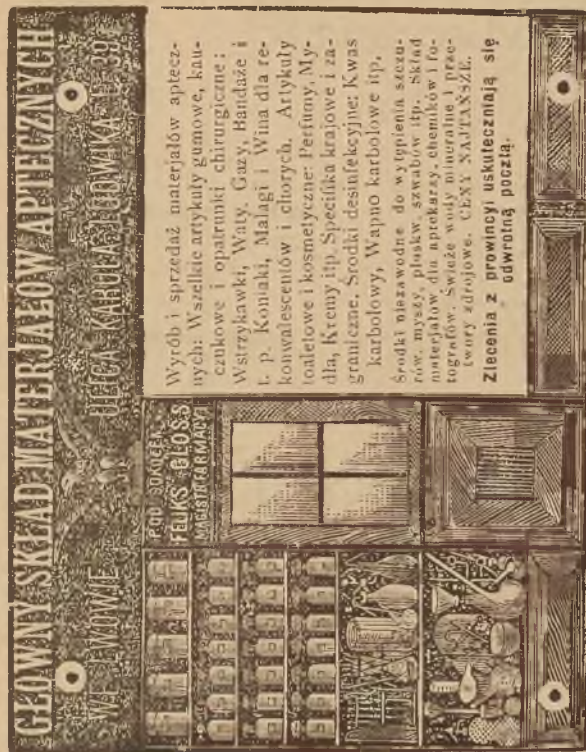 GŁÓWNY SKŁAD MATERJAŁÓW APTECZNYCH
WE LWOWIE ULICA KAROLA LUDWIKA L. 39.
POD SOKOŁEM
FELIKS GLOSS
MAGISTR FARMACYI
Wyrób i sprzedaż materjałów aptecz-
nych: Wszelkie artykuły gumowe, kau-
czukowe i opatrunki chirurgiczne;
Wstrzykawki, Waty, Gazy, Bandaże i
t. p. Koniaki, Malagi i Wina dla re-
konwalescentów i chorych. Artykuły
toaletowe i kosmetyczne: Perfumy, My-
dła, Kremy itp. Specifika krajowe i za-
graniczne. Środki desinfekcyjne: Kwas
karbolowy, Wapno karbolowe itp.
Środki niezawodne do wytępienia szczu-
rów, myszy, pluskw, szwabów itp. Skład
materjałów dla aptekarzy, chemików i fo-
tografów. Świeże wody mineralne i prze-
twory zdrojowe. CENY NAJTAŃSZE.
Zlecenia z prowincyi uskuteczniają się
odwrotną pocztą.